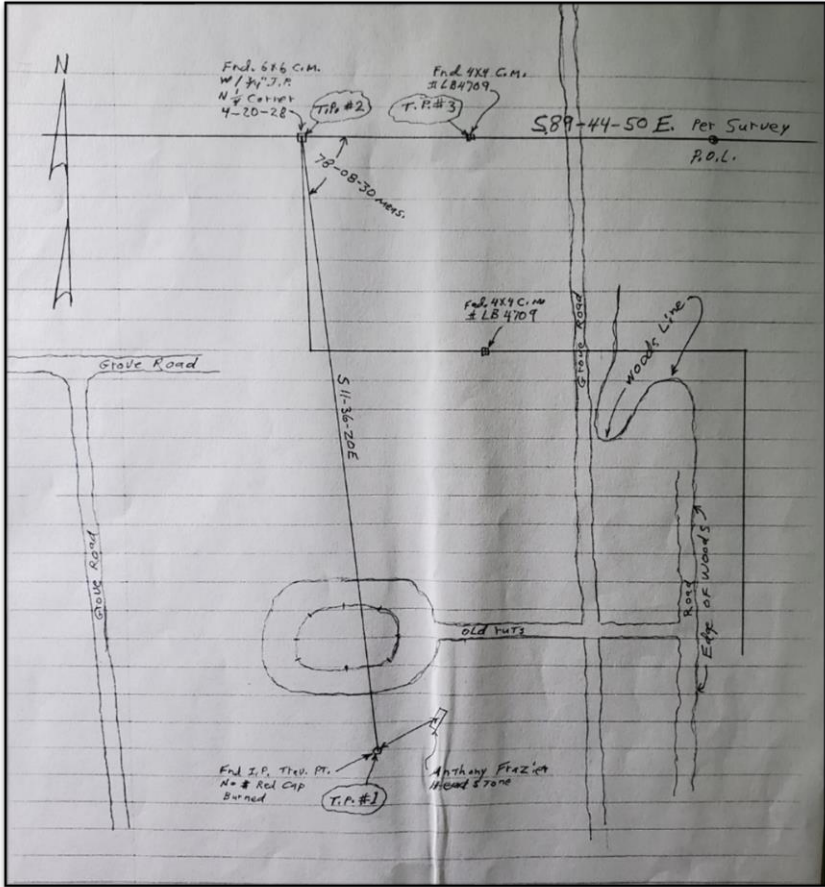 N
Fnd. 6x6 C.M.
W/ 3/4" I.P.
N 1/4 Corner
4-20-28
T.P. #2
Fnd 4x4 C.M.
# LB4709
T.P. #3
S89-44-50 E. Per Survey
P.O.L.
78-08-30 meas.
Fnd. 4x4 C.M.
# LB 4709
Grove Road
Woods Line
Grove Road
S 11-36-20E
Grove Road
Road
Edge OF Woods
old ruts
Fnd I.P. Trav. PT.
No # Red Cap
Burned
T.P. #1
Anthony Frazier
Head Stone